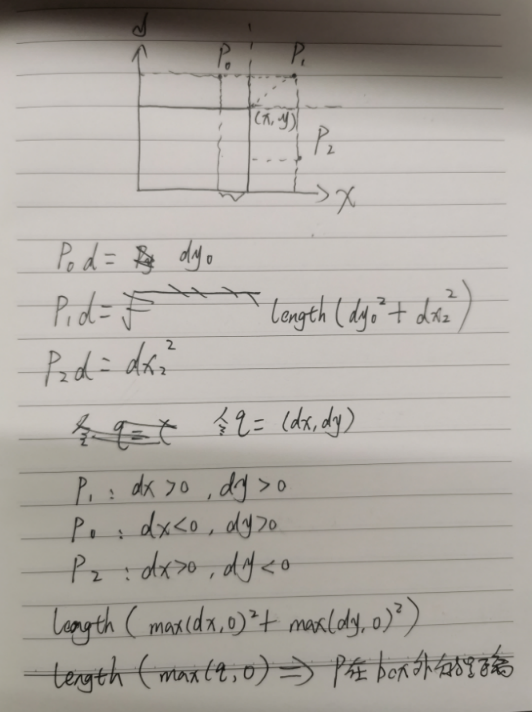 d
P₀ P₁
(x, y)
P₂
x
P₀ d = dy₀
P₁ d = length(dy₀² + dx₂²)
P₂ d = dx₂²
令 q = (dx, dy)
P₁ : dx > 0 , dy > 0
P₀ : dx < 0 , dy > 0
P₂ : dx > 0 , dy < 0
length ( max(dx, 0)² + max(dy, 0)² )
length ( max(q, 0) ⇒ P在box外